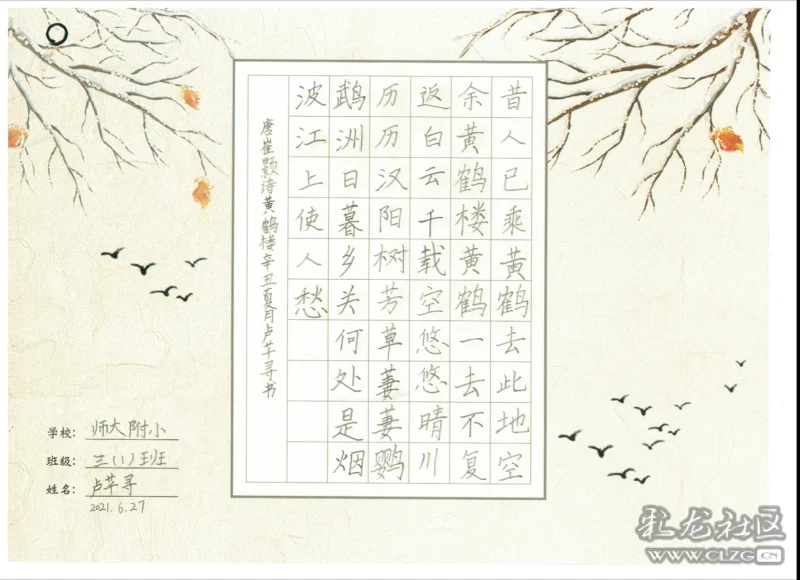 昔人已乘黄鹤去此地空
余黄鹤楼黄鹤一去不复
返白云千载空悠悠晴川
历历汉阳树芳草萋萋鹦
鹉洲日暮乡关何处是烟
波江上使人愁
唐崔颢诗黄鹤楼辛丑夏月卢芊寻书
学校：师大附小
班级：三(1)班
姓名：卢芊寻
2021.6.27
化龙社区
WWW.CLZG.CN